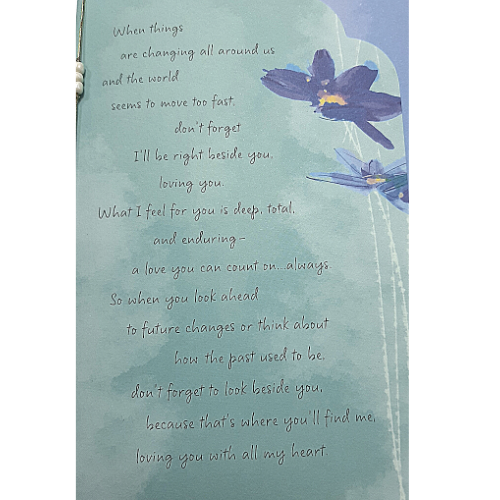 When things
are changing all around us
and the world
seems to move too fast,
don't forget
I'll be right beside you,
loving you.
What I feel for you is deep, total,
and enduring-
a love you can count on...always.
So when you look ahead
to future changes or think about
how the past used to be,
don't forget to look beside you,
because that's where you'll find me,
loving you with all my heart.